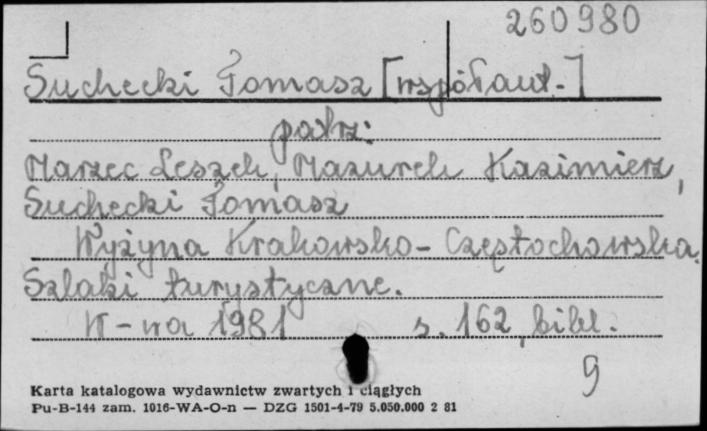 260980
Suchecki Tomasz [współaut.]
patrz:
Marzec Leszek, Mazurek Kazimierz,
Suchecki Tomasz
Wyżyna Krakowsko-Częstochowska.
Szlaki turystyczne.
W-wa 1981 s. 162, bibl.
9
Karta katalogowa wydawnictw zwartych i ciągłych
Pu-B-144 zam. 1016-WA-O-n — DZG 1501-4-79 5.050.000 2 81